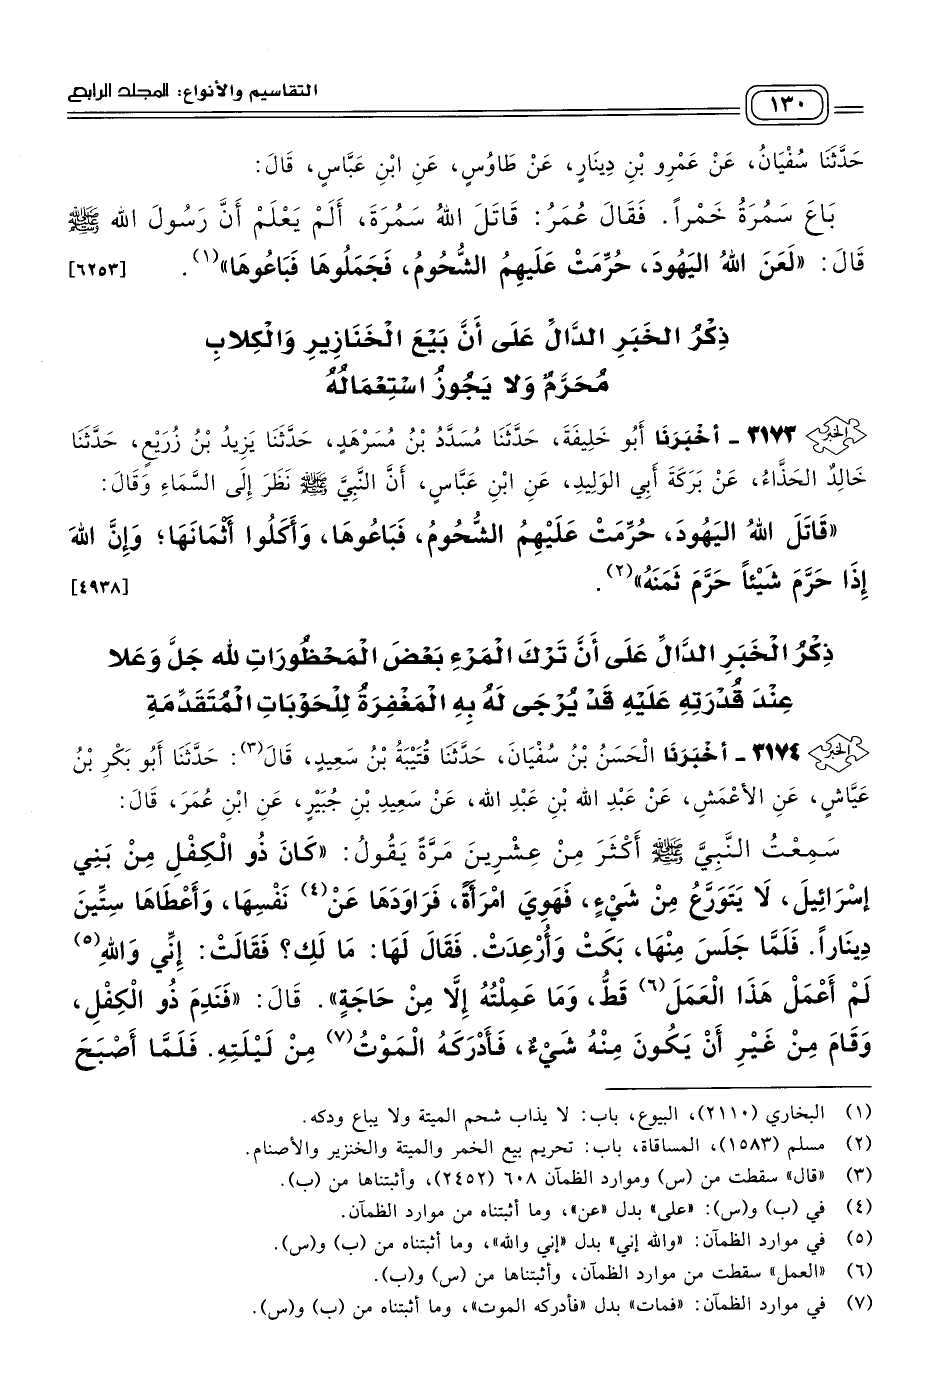 ١٣٠ التقاسيم والأنواع: المجلد الرابع
حَدَّثَنَا سُفْيَانُ، عَنْ عَمْرِو بْنِ دِينَارٍ، عَنْ طَاوُسٍ، عَنِ ابْنِ عَبَّاسٍ، قَالَ:
بَاعَ سَمُرَةُ خَمْراً. فَقَالَ عُمَرُ: قَاتَلَ اللهُ سَمُرَةَ، أَلَمْ يَعْلَمْ أَنَّ رَسُولَ الله ﷺ
قَالَ: «لَعَنَ اللهُ اليَهُودَ، حُرِّمَتْ عَلَيْهِمُ الشُّحُومُ، فَجَمَلُوهَا فَبَاعُوهَا»(١). [٦٢٥٣]
ذِكْرُ الْخَبَرِ الدَّالِّ عَلَى أَنَّ بَيْعَ الْخَنَازِيرِ وَالْكِلابِ
مُحَرَّمٌ وَلا يَجُوزُ اسْتِعْمَالُهُ
الخبر ٣١٧٣ - أَخْبَرَنَا أَبُو خَلِيفَةَ، حَدَّثَنَا مُسَدَّدُ بْنُ مُسَرْهَدٍ، حَدَّثَنَا يَزِيدُ بْنُ زُرَيْعٍ، حَدَّثَنَا
خَالِدٌ الحَذَّاءُ، عَنْ بَرَكَةَ أَبِي الوَلِيدِ، عَنِ ابْنِ عَبَّاسٍ، أَنَّ النَّبِيَّ ﷺ نَظَرَ إِلَى السَّمَاءِ وَقَالَ:
«قَاتَلَ اللهُ اليَهُودَ، حُرِّمَتْ عَلَيْهِمُ الشُّحُومُ، فَبَاعُوهَا، وَأَكَلُوا أَثْمَانَهَا؛ وَإِنَّ اللهَ
إِذَا حَرَّمَ شَيْئاً حَرَّمَ ثَمَنَهُ»(٢). [٤٩٣٨]
ذِكْرُ الْخَبَرِ الدَّالِّ عَلَى أَنَّ تَرْكَ الْمَرْءِ بَعْضَ الْمَحْظُورَاتِ لله جَلَّ وَعَلا
عِنْدَ قُدْرَتِهِ عَلَيْهِ قَدْ يُرْجَى لَهُ بِهِ الْمَغْفِرَةُ لِلْحَوْبَاتِ الْمُتَقَدِّمَةِ
الخبر ٣١٧٤ - أَخْبَرَنَا الْحَسَنُ بْنُ سُفْيَانَ، حَدَّثَنَا قُتَيْبَةُ بْنُ سَعِيدٍ، قَالَ(٣): حَدَّثَنَا أَبُو بَكْرِ بْنُ
عَيَّاشٍ، عَنِ الأَعْمَشِ، عَنْ عَبْدِ الله بْنِ عَبْدِ الله، عَنْ سَعِيدِ بْنِ جُبَيْرٍ، عَنِ ابْنِ عُمَرَ، قَالَ:
سَمِعْتُ النَّبِيَّ ﷺ أَكْثَرَ مِنْ عِشْرِينَ مَرَّةً يَقُولُ: «كَانَ ذُو الْكِفْلِ مِنْ بَنِي
إِسْرَائِيلَ، لَا يَتَوَرَّعُ مِنْ شَيْءٍ، فَهَوِيَ امْرَأَةً، فَرَاوَدَهَا عَنْ(٤) نَفْسِهَا، وَأَعْطَاهَا سِتِّينَ
دِينَاراً. فَلَمَّا جَلَسَ مِنْهَا، بَكَتْ وَأُرْعِدَتْ. فَقَالَ لَهَا: مَا لَكِ؟ فَقَالَتْ: إِنِّي وَاللهِ(٥)
لَمْ أَعْمَلْ هَذَا الْعَمَلَ(٦) قَطُّ، وَمَا عَمِلْتُهُ إِلَّا مِنْ حَاجَةٍ». قَالَ: «فَنَدِمَ ذُو الْكِفْلِ،
وَقَامَ مِنْ غَيْرِ أَنْ يَكُونَ مِنْهُ شَيْءٌ، فَأَدْرَكَهُ الْمَوْتُ(٧) مِنْ لَيْلَتِهِ. فَلَمَّا أَصْبَحَ
(١) البخاري (٢١١٠)، البيوع، باب: لا يذاب شحم الميتة ولا يباع ودكه.
(٢) مسلم (١٥٨٣)، المساقاة، باب: تحريم بيع الخمر والميتة والخنزير والأصنام.
(٣) «قال» سقطت من (س) وموارد الظمآن ٦٠٨ (٢٤٥٢)، وأثبتناها من (ب).
(٤) في (ب) و(س): «على» بدل «عن»، وما أثبتناه من موارد الظمآن.
(٥) في موارد الظمآن: «والله إني» بدل «إني والله»، وما أثبتناه من (ب) و(س).
(٦) «العمل» سقطت من موارد الظمآن، وأثبتناها من (س) و(ب).
(٧) في موارد الظمآن: «فمات» بدل «فأدركه الموت»، وما أثبتناه من (ب) و(س).